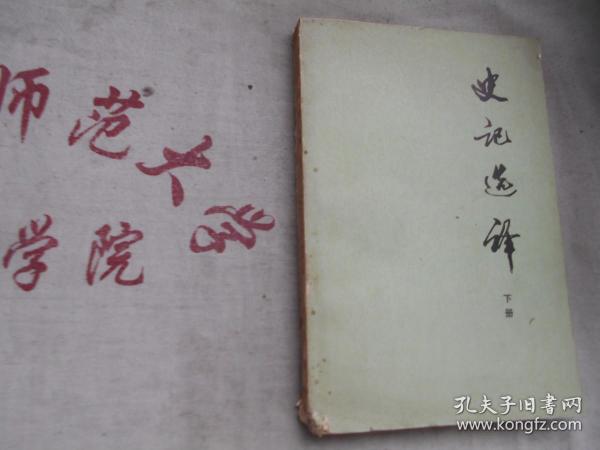 师范大学
学院
史记选译
下册
孔夫子旧书网
www.kongfz.com